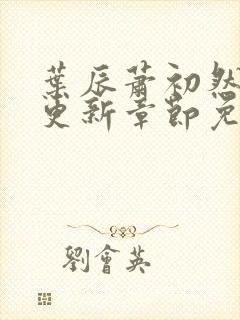 葉辰蕭初然
更新章節免
劉會英